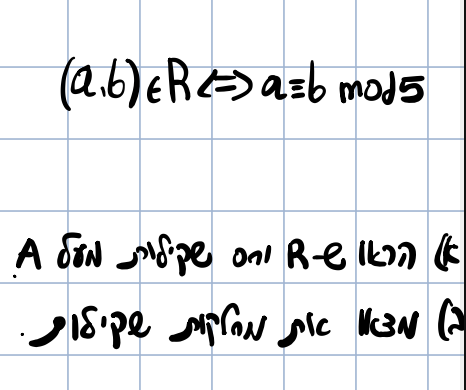 (a,b)∈R <=> a≡b mod5
א) הראו ש-R יחס שקילות מעל A.
ב) מצאו את מחלקות שקילות.